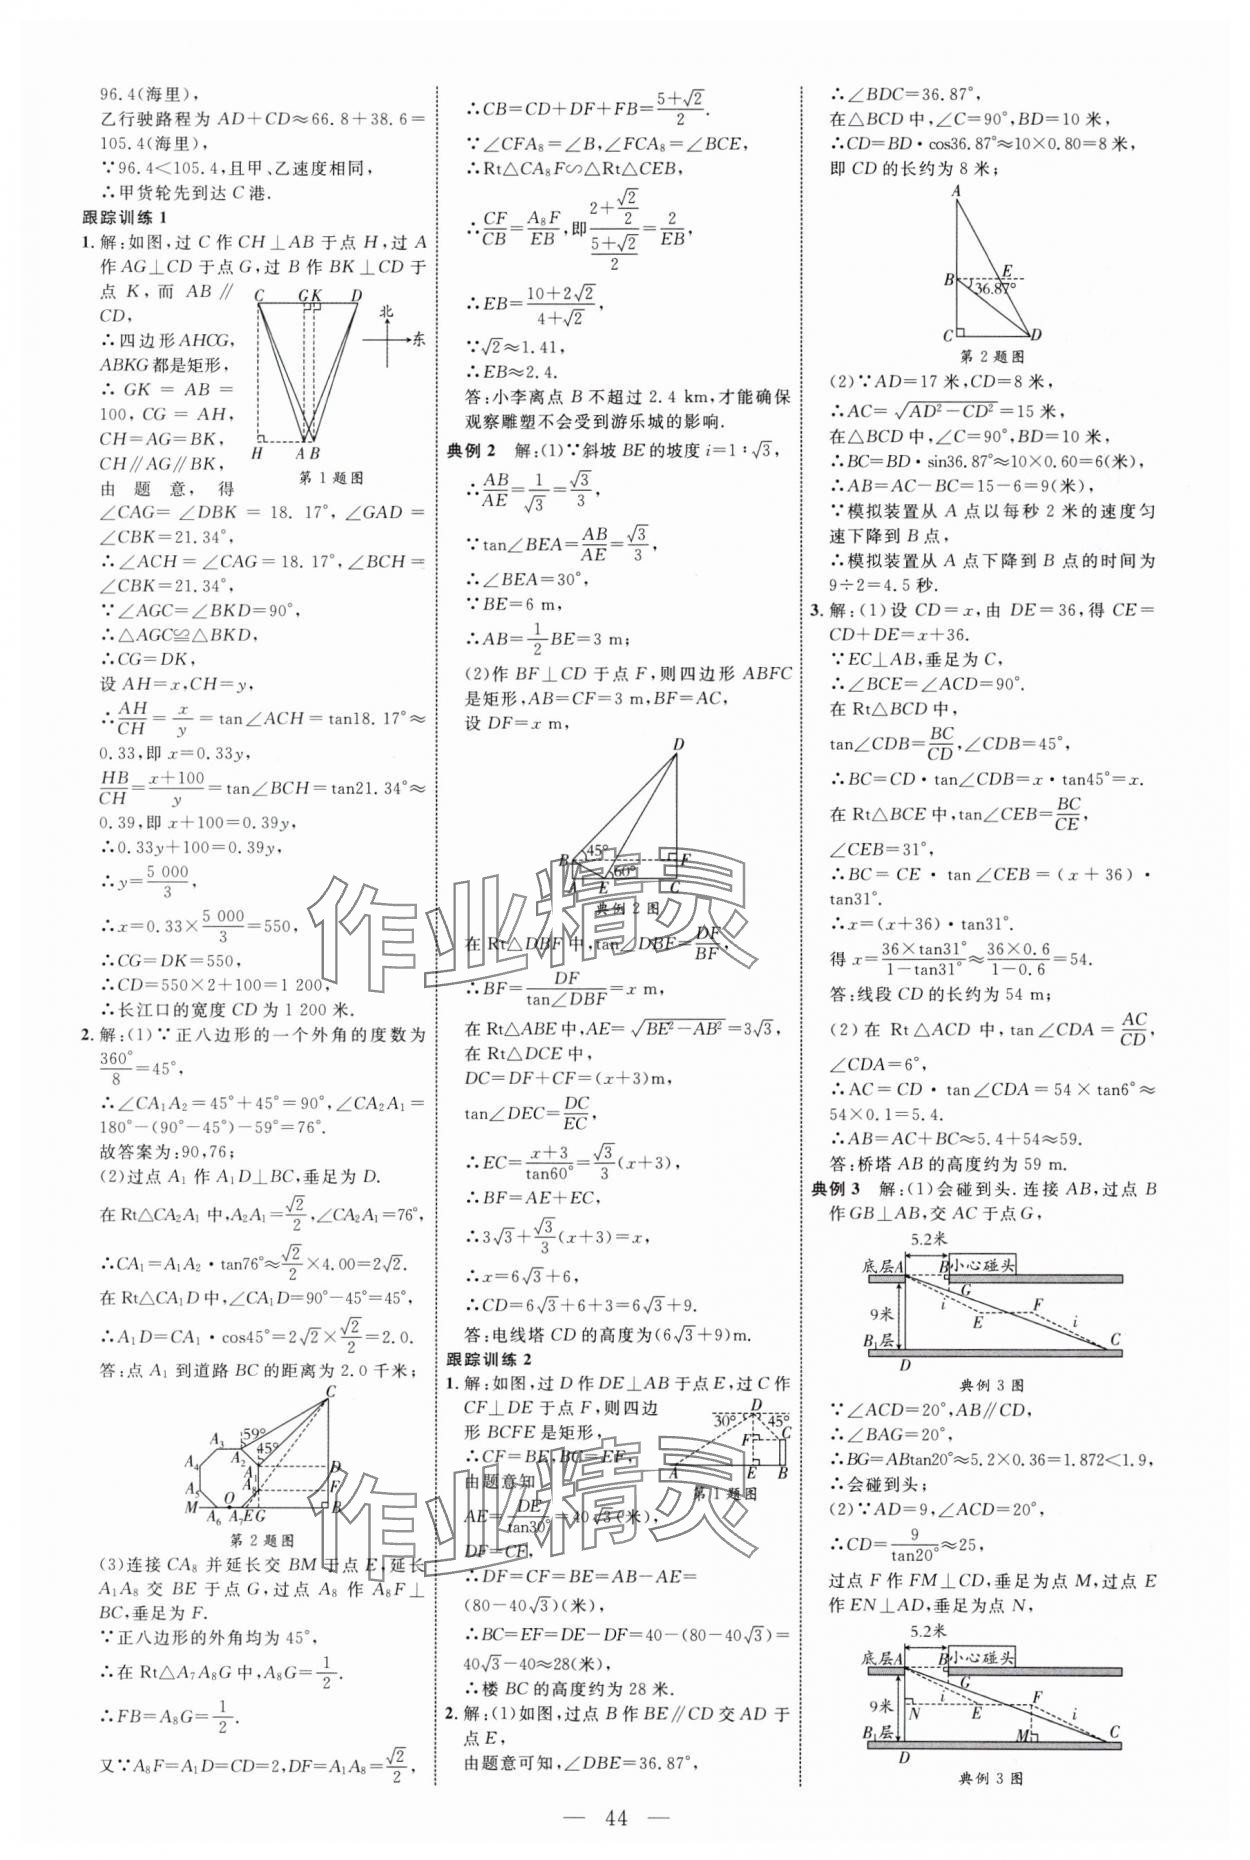 96.4(海里),
乙行驶路程为 AD+CD≈66.8+38.6=
105.4(海里),
∵96.4<105.4,且甲、乙速度相同,
∴甲货轮先到达 C 港.
跟踪训练 1
1. 解:如图,过 C 作 CH⊥AB 于点 H,过 A
作 AG⊥CD 于点 G,过 B 作 BK⊥CD 于
点 K,而 AB∥
CD,
∴四边形 AHCG,
ABKG 都是矩形,
∴GK=AB=
100,CG=AH,
CH=AG=BK,
CH∥AG∥BK,
C GK D
北
东
H A B
第 1 题图
由题意,得
∠CAG=∠DBK=18.17°,∠GAD=
∠CBK=21.34°,
∴∠ACH=∠CAG=18.17°,∠BCH=
∠CBK=21.34°,
∵∠AGC=∠BKD=90°,
∴△AGC≌△BKD,
∴CG=DK,
设 AH=x,CH=y,
∴AH/CH=x/y=tan∠ACH=tan18.17°≈
0.33,即 x=0.33y,
HB/CH=(x+100)/y=tan∠BCH=tan21.34°≈
0.39,即 x+100=0.39y,
∴0.33y+100=0.39y,
∴y=5 000/3,
∴x=0.33×5 000/3=550,
∴CG=DK=550,
∴CD=550×2+100=1 200,
∴长江口的宽度 CD 为 1 200 米.
2. 解:(1)∵正八边形的一个外角的度数为
360°/8=45°,
∴∠CA₁A₂=45°+45°=90°,∠CA₂A₁=
180°-(90°-45°)-59°=76°.
故答案为:90,76;
(2)过点 A₁ 作 A₁D⊥BC,垂足为 D.
在 Rt△CA₂A₁ 中,A₂A₁=√2/2,∠CA₂A₁=76°,
∴CA₁=A₁A₂·tan76°≈√2/2×4.00=2√2.
在 Rt△CA₁D 中,∠CA₁D=90°-45°=45°,
∴A₁D=CA₁·cos45°=2√2×√2/2=2.0.
答:点 A₁ 到道路 BC 的距离为 2.0 千米;
C
59°
A₃ A₂ 45°
A₄ A₁ D
A₅ A₈ F
M A₆ O A₇ E G B
第 2 题图
(3)连接 CA₈ 并延长交 BM 于点 E,延长
A₁A₈ 交 BE 于点 G,过点 A₈ 作 A₈F⊥
BC,垂足为 F.
∵正八边形的外角均为 45°,
∴在 Rt△A₇A₈G 中,A₈G=1/2.
∴FB=A₈G=1/2.
又∵A₈F=A₁D=CD=2,DF=A₁A₈=√2/2,
∴CB=CD+DF+FB=(5+√2)/2.
∵∠CFA₈=∠B,∠FCA₈=∠BCE,
∴Rt△CA₈F∽△Rt△CEB,
∴CF/CB=A₈F/EB,即(2+√2/2)/((5+√2)/2)=2/EB,
∴EB=(10+2√2)/(4+√2),
∵√2≈1.41,
∴EB≈2.4.
答:小李离点 B 不超过 2.4 km,才能确保
观察雕塑不会受到游乐城的影响.
典例 2 解:(1)∵斜坡 BE 的坡度 i=1∶√3,
∴AB/AE=1/√3=√3/3,
∵tan∠BEA=AB/AE=√3/3,
∴∠BEA=30°,
∵BE=6 m,
∴AB=1/2BE=3 m;
(2)作 BF⊥CD 于点 F,则四边形 ABFC
是矩形,AB=CF=3 m,BF=AC,
设 DF=x m,
D
B 45° F
60°
A E C
典例 2 图
在 Rt△DBF 中,tan∠DBF=DF/BF,
∴BF=DF/tan∠DBF=x m,
在 Rt△ABE 中,AE=√(BE²-AB²)=3√3,
在 Rt△DCE 中,
DC=DF+CF=(x+3)m,
tan∠DEC=DC/EC,
∴EC=(x+3)/tan60°=√3/3(x+3),
∴BF=AE+EC,
∴3√3+√3/3(x+3)=x,
∴x=6√3+6,
∴CD=6√3+6+3=6√3+9.
答:电线塔 CD 的高度为(6√3+9)m.
跟踪训练 2
1. 解:如图,过 D 作 DE⊥AB 于点 E,过 C 作
CF⊥DE 于点 F,则四边
形 BCFE 是矩形,
∴CF=BE,BC=EF,
由题意知
AE=DE/tan30°=40√3(米),
DF=CF,
D
30° 45°
F C
A E B
第 1 题图
∴DF=CF=BE=AB-AE=
(80-40√3)(米),
∴BC=EF=DE-DF=40-(80-40√3)=
40√3-40≈28(米),
∴楼 BC 的高度约为 28 米.
2. 解:(1)如图,过点 B 作 BE∥CD 交 AD 于
点 E,
由题意可知,∠DBE=36.87°,
∴∠BDC=36.87°,
在△BCD 中,∠C=90°,BD=10 米,
∴CD=BD·cos36.87°≈10×0.80=8 米,
即 CD 的长约为 8 米;
A
B E
36.87°
C D
第 2 题图
(2)∵AD=17 米,CD=8 米,
∴AC=√(AD²-CD²)=15 米,
在△BCD 中,∠C=90°,BD=10 米,
∴BC=BD·sin36.87°≈10×0.60=6(米),
∴AB=AC-BC=15-6=9(米),
∵模拟装置从 A 点以每秒 2 米的速度匀
速下降到 B 点,
∴模拟装置从 A 点下降到 B 点的时间为
9÷2=4.5 秒.
3. 解:(1)设 CD=x,由 DE=36,得 CE=
CD+DE=x+36.
∵EC⊥AB,垂足为 C,
∴∠BCE=∠ACD=90°.
在 Rt△BCD 中,
tan∠CDB=BC/CD,∠CDB=45°,
∴BC=CD·tan∠CDB=x·tan45°=x.
在 Rt△BCE 中,tan∠CEB=BC/CE,
∠CEB=31°,
∴BC=CE·tan∠CEB=(x+36)·
tan31°.
∴x=(x+36)·tan31°.
得 x=36×tan31°/(1-tan31°)≈36×0.6/(1-0.6)=54.
答:线段 CD 的长约为 54 m;
(2)在 Rt△ACD 中,tan∠CDA=AC/CD,
∠CDA=6°,
∴AC=CD·tan∠CDA=54×tan6°≈
54×0.1=5.4.
∴AB=AC+BC≈5.4+54≈59.
答:桥塔 AB 的高度约为 59 m.
典例 3 解:(1)会碰到头.连接 AB,过点 B
作 GB⊥AB,交 AC 于点 G,
5.2米
底层A B 小心碰头
G
9米 i E F i
B₁层 D C
典例 3 图
∵∠ACD=20°,AB∥CD,
∴∠BAG=20°.
∴BG=ABtan20°≈5.2×0.36=1.872<1.9,
∴会碰到头;
(2)∵AD=9,∠ACD=20°,
∴CD=9/tan20°≈25,
过点 F 作 FM⊥CD,垂足为点 M,过点 E
作 EN⊥AD,垂足为点 N,
5.2米
底层A B 小心碰头
G
9米 N i E F i
B₁层 D M C
典例 3 图
— 44 —
作业精灵
作业精灵